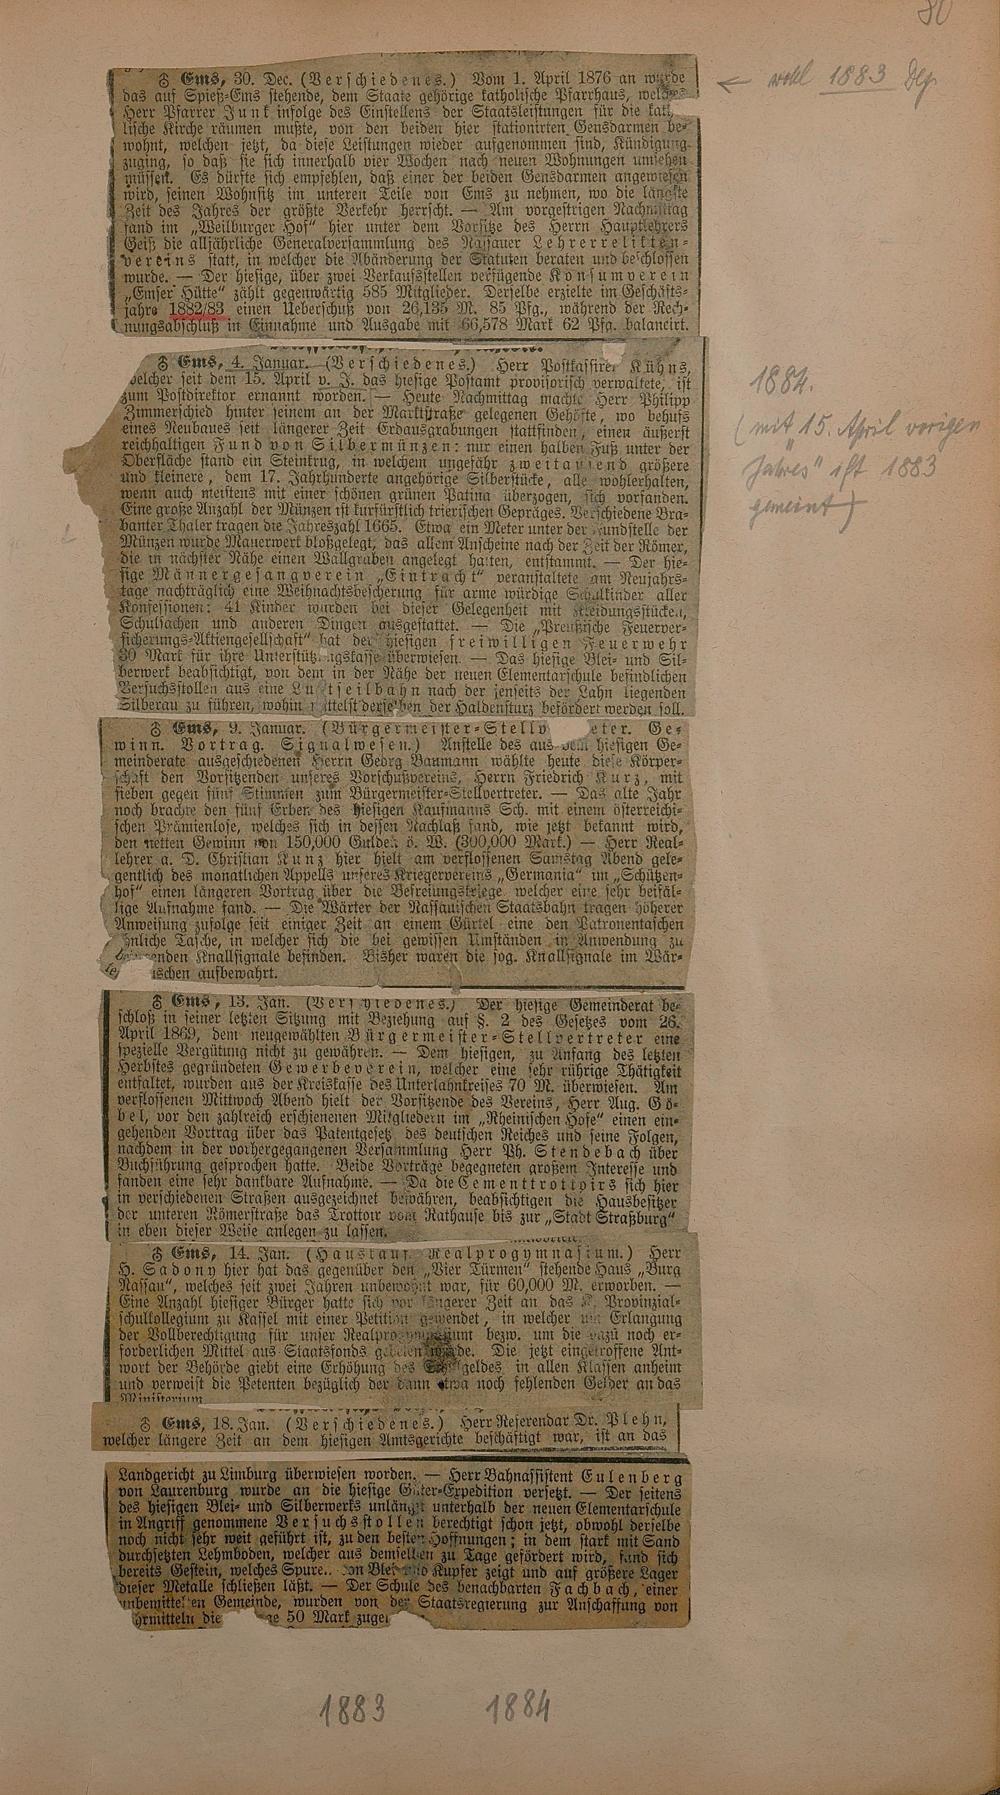 80
♁ Ems, 30. Dec. (Verschiedenes.) Vom 1. April 1876 an wurde
das auf Spieß-Ems stehende, dem Staate gehörige katholische Pfarrhaus, welches
Herr Pfarrer Junk infolge des Einstellens der Staatsleistungen für die kath
lische Kirche räumen mußte, von den beiden hier stationirten Gensdarmen be-
wohnt, welchen jetzt, da diese Leistungen wieder aufgenommen sind, Kündigung
zuging, so daß sie sich innerhalb vier Wochen nach neuen Wohnungen umsehen
müssen. Es dürfte sich empfehlen, daß einer der beiden Gensdarmen angewiesen
wird, seinen Wohnsitz im unteren Teile von Ems zu nehmen, wo die längste
Zeit des Jahres der größte Verkehr herrscht. — Am vorgestrigen Nachmittag
fand im „Weilburger Hof" hier unter dem Vorsitze des Herrn Hauptlehrers
Geiß die alljährliche Generalversammlung des Nassauer Lehrerrelikten-
vereins statt, in welcher die Abänderung der Statuten beraten und beschlossen
wurde. — Der hiesige, über zwei Verkaufsstellen verfügende Konsumverein
„Emser Hütte" zählt gegenwärtig 585 Mitglieder. Derselbe erzielte im Geschäfts-
jahre 1882/83 einen Ueberschuß von 26,135 M. 85 Pfg., während der Rech-
nungsabschluß in Einnahme und Ausgabe mit 66,578 Mark 62 Pfg. balancirt.
← wohl 1883 Dez.
♁ Ems, 4. Januar. (Verschiedenes.) Herr Postkassirer Kühns,
welcher seit dem 15. April v. J. das hiesige Postamt provisorisch verwaltete, ist
zum Postdirektor ernannt worden. — Heute Nachmittag machte Herr Philipp
Zimmerschied hinter seinem an der Marktstraße gelegenen Gehöfte, wo behufs
eines Neubaues seit längerer Zeit Erdausgrabungen stattfinden, einen äußerst
reichhaltigen Fund von Silbermünzen: nur einen halben Fuß unter der
Oberfläche stand ein Steinkrug, in welchem ungefähr zweitausend größere
und kleinere, dem 17. Jahrhunderte angehörige Silberstücke, alle wohlerhalten,
wenn auch meistens mit einer schönen grünen Patina überzogen, sich vorfanden.
Eine große Anzahl der Münzen ist kurfürstlich trierischen Gepräges. Verschiedene Bra-
banter Thaler tragen die Jahreszahl 1665. Etwa ein Meter unter der undstelle der
Münzen wurde Mauerwerk bloßgelegt, das allem Anscheine nach der Zeit der Römer,
die in nächster Nähe einen Wallgraben angelegt hatten, entstammt. — Der hie-
sige Männergesangverein „Eintracht" veranstaltete am Neujahrs-
tage nachträglich eine Weihnachtsbescherung für arme würdige Schulkinder aller
Konfessionen: 41 Kinder wurden bei dieser Gelegenheit mit Kleidungsstücken,
Schulsachen und anderen Dingen ausgestattet. — Die „Preußische Feuerver-
sicherungs-Aktiengesellschaft" hat der hiesigen freiwilligen Feuerwehr
30 Mark für ihre Unterstützungskasse überwiesen. — Das hiesige Blei- und Sil-
berwerk beabsichtigt, von dem in der Nähe der neuen Elementarschule befindlichen
Versuchsstollen aus eine Luftseilbahn nach der jenseits der Lahn liegenden
Silberau zu führen, wohin mittelst derselben der Haldensturz befördert werden soll.
1884.
(mit „15. April vorigen
Jahres" ist 1883
gemeint)
♁ Ems, 9. Januar. (Bürgermeister-Stellv eter. Ge-
winn. Vortrag. Signalwesen.) Anstelle des aus dem hiesigen Ge-
meinderate ausgeschiedenen Herrn Georg Baumann wählte heute diese Körper-
schaft den Vorsitzenden unseres Vorschußvereins, Herrn Friedrich Kurz, mit
sieben gegen fünf Stimmen zum Bürgermeister-Stellvertreter. — Das alte Jahr
noch brachte den fünf Erben des hiesigen Kaufmanns Sch. mit einem österreichi-
schen Prämienlose, welches sich in dessen Nachlaß fand, wie jetzt bekannt wird,
den netten Gewinn von 150,000 Gulden ö. W. (300,000 Mark.) — Herr Real-
lehrer a. D. Christian Kunz hier hielt am verflossenen Samstag Abend gele-
gentlich des monatlichen Appells unseres Kriegervereins „Germania" im „Schützen-
hof" einen längeren Vortrag über die Befreiungskriege, welcher eine sehr beifäl-
lige Aufnahme fand. — Die Wärter der Nassauischen Staatsbahn tragen höherer
Anweisung zufolge seit einiger Zeit an einem Gürtel eine den Patronentaschen
ähnliche Tasche, in welcher sich die bei gewissen Umständen in Anwendung zu
enden Knallsignale befinden. Bisher waren die sog. Knallsignale im Wär-
ischen aufbewahrt.
♁ Ems, 13. Jan. (Verschiedenes.) Der hiesige Gemeinderat be-
schloß in seiner letzten Sitzung mit Beziehung auf §. 2 des Gesetzes vom 26.
April 1869, dem neugewählten Bürgermeister-Stellvertreter eine
spezielle Vergütung nicht zu gewähren. — Dem hiesigen, zu Anfang des letzten
Herbstes gegründeten Gewerbeverein, welcher eine sehr rührige Thätigkeit
entfaltet, wurden aus der Kreiskasse des Unterlahnkreises 70 M. überwiesen. Am
verflossenen Mittwoch Abend hielt der Vorsitzende des Vereins, Herr Aug. Gö-
bel, vor den zahlreich erschienenen Mitgliedern im „Rheinischen Hofe" einen ein-
gehenden Vortrag über das Patentgesetz des deutschen Reiches und seine Folgen,
nachdem in der vorhergegangenen Versammlung Herr Ph. Stendebach über
Buchführung gesprochen hatte. Beide Vorträge begegneten großem Interesse und
fanden eine sehr dankbare Aufnahme. — Da die Cementtrottoirs sich hier
in verschiedenen Straßen ausgezeichnet bewähren, beabsichtigen die Hausbesitzer
der unteren Römerstraße das Trottoir vom Rathause bis zur „Stadt Straßburg"
in eben dieser Weise anlegen zu lassen.
♁ Ems, 14. Jan. (Hauskauf. Realprogymnasium.) Herr
H. Sadony hier hat das gegenüber den „Vier Türmen" stehende Haus „Burg
Nassau", welches seit zwei Jahren unbewohnt war, für 60,000 M. erworben. —
Eine Anzahl hiesiger Bürger hatte sich vor längerer Zeit an das K. Provinzial-
schulkollegium zu Kassel mit einer Petition gewendet, in welcher um Erlangung
der Vollberechtigung für unser Realprogymnasium bezw. um die dazu noch er-
forderlichen Mittel aus Staatsfonds gebeten wurde. Die jetzt eingetroffene Ant-
wort der Behörde giebt eine Erhöhung des Schulgeldes in allen Klassen anheim
und verweist die Petenten bezüglich der dann etwa noch fehlenden Gelder an das
Ministerium.
♁ Ems, 18. Jan. (Verschiedenes.) Herr Referendar Dr. Plehn,
welcher längere Zeit an dem hiesigen Amtsgerichte beschäftigt war, ist an das
Landgericht zu Limburg überwiesen worden. — Herr Bahnassistent Eulenberg
von Laurenburg wurde an die hiesige Güter-Expedition versetzt. — Der seitens
des hiesigen Blei- und Silberwerks unlängst unterhalb der neuen Elementarschule
in Angriff genommene Versuchsstollen berechtigt schon jetzt, obwohl derselbe
noch nicht sehr weit geführt ist, zu den besten Hoffnungen; in dem stark mit Sand
durchsetzten Lehmboden, welcher aus demselben zu Tage gefördert wird, fand sich
bereits Gestein, welches Spuren von Blei und Kupfer zeigt und auf größere Lager
dieser Metalle schließen läßt. — Der Schule des benachbarten Fachbach, einer
unbemittelten Gemeinde, wurden von der Staatsregierung zur Anschaffung von
hrmitteln die 50 Mark zuge
1883 1884